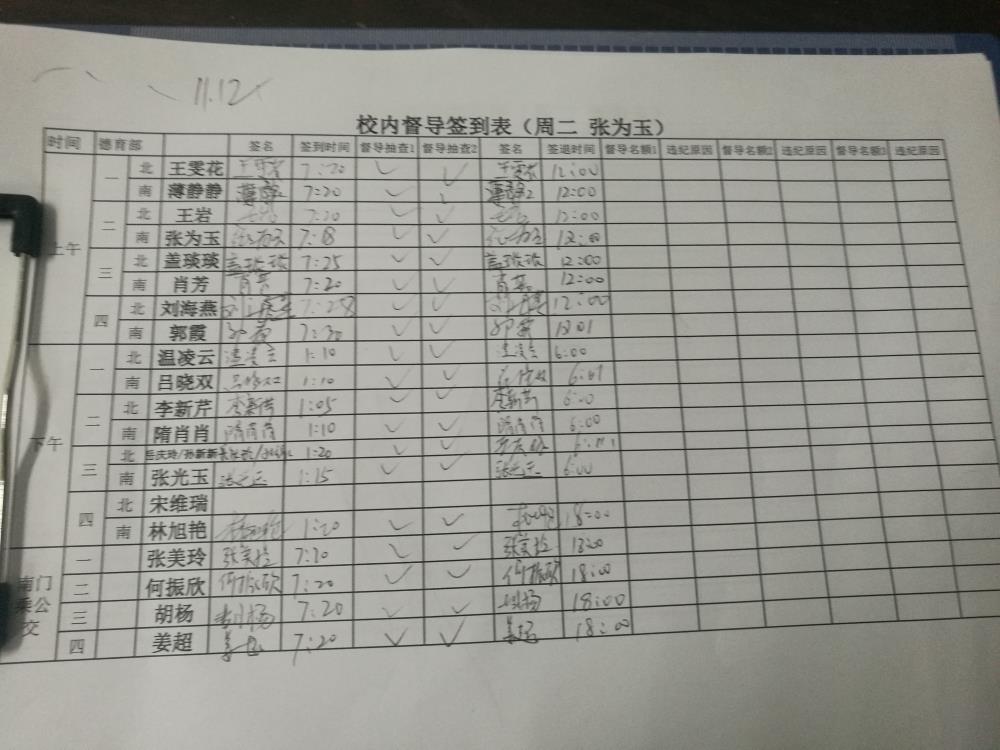 11.12
校内督导签到表（周二 张为玉）
时间 德育部 签名 签到时间 督导抽查1 督导抽查2 签名 签退时间 督导名额1 违纪原因 督导名额2 违纪原因 督导名额3 违纪原因
上午 一 北 王雯花 王雯花 7:20 ✓ ✓ 王雯花 12:00
南 薄静静 7:20 ✓ ✓ 12:00
二 北 王岩 7:20 ✓ ✓ 12:00
南 张为玉 7:18 ✓ ✓ 12:00
三 北 盖琰琰 盖琰琰 7:25 ✓ ✓ 盖琰琰 12:00
南 肖芳 肖芳 7:20 ✓ ✓ 肖芳 12:00
四 北 刘海燕 7:28 ✓ ✓ 12:00
南 郭霞 郭霞 7:30 ✓ ✓ 郭霞 12:01
下午 一 北 温凌云 温凌云 1:10 ✓ ✓ 温凌云 6:00
南 吕晓双 1:10 ✓ ✓ 6:01
二 北 李新芹 李新芹 1:05 ✓ ✓ 李新芹 6:00
南 隋肖肖 隋肖肖 1:10 ✓ ✓ 隋肖肖 6:00
三 北 岳庆玲/孙新新 1:20 ✓ ✓
南 张光玉 张光玉 1:15 ✓ ✓ 张光玉 6:00
四 北 宋维瑞
南 林旭艳 林旭艳 1:20 ✓ ✓ 18:00
南门乘公交 一 张美玲 张美玲 7:10 ✓ ✓ 张美玲
二 何振欣 何振欣 7:20 ✓ ✓ 何振欣 18:00
三 胡杨 胡杨 7:20 ✓ ✓ 胡杨 18:00
四 姜超 姜超 7:20 ✓ ✓ 姜超 18:00